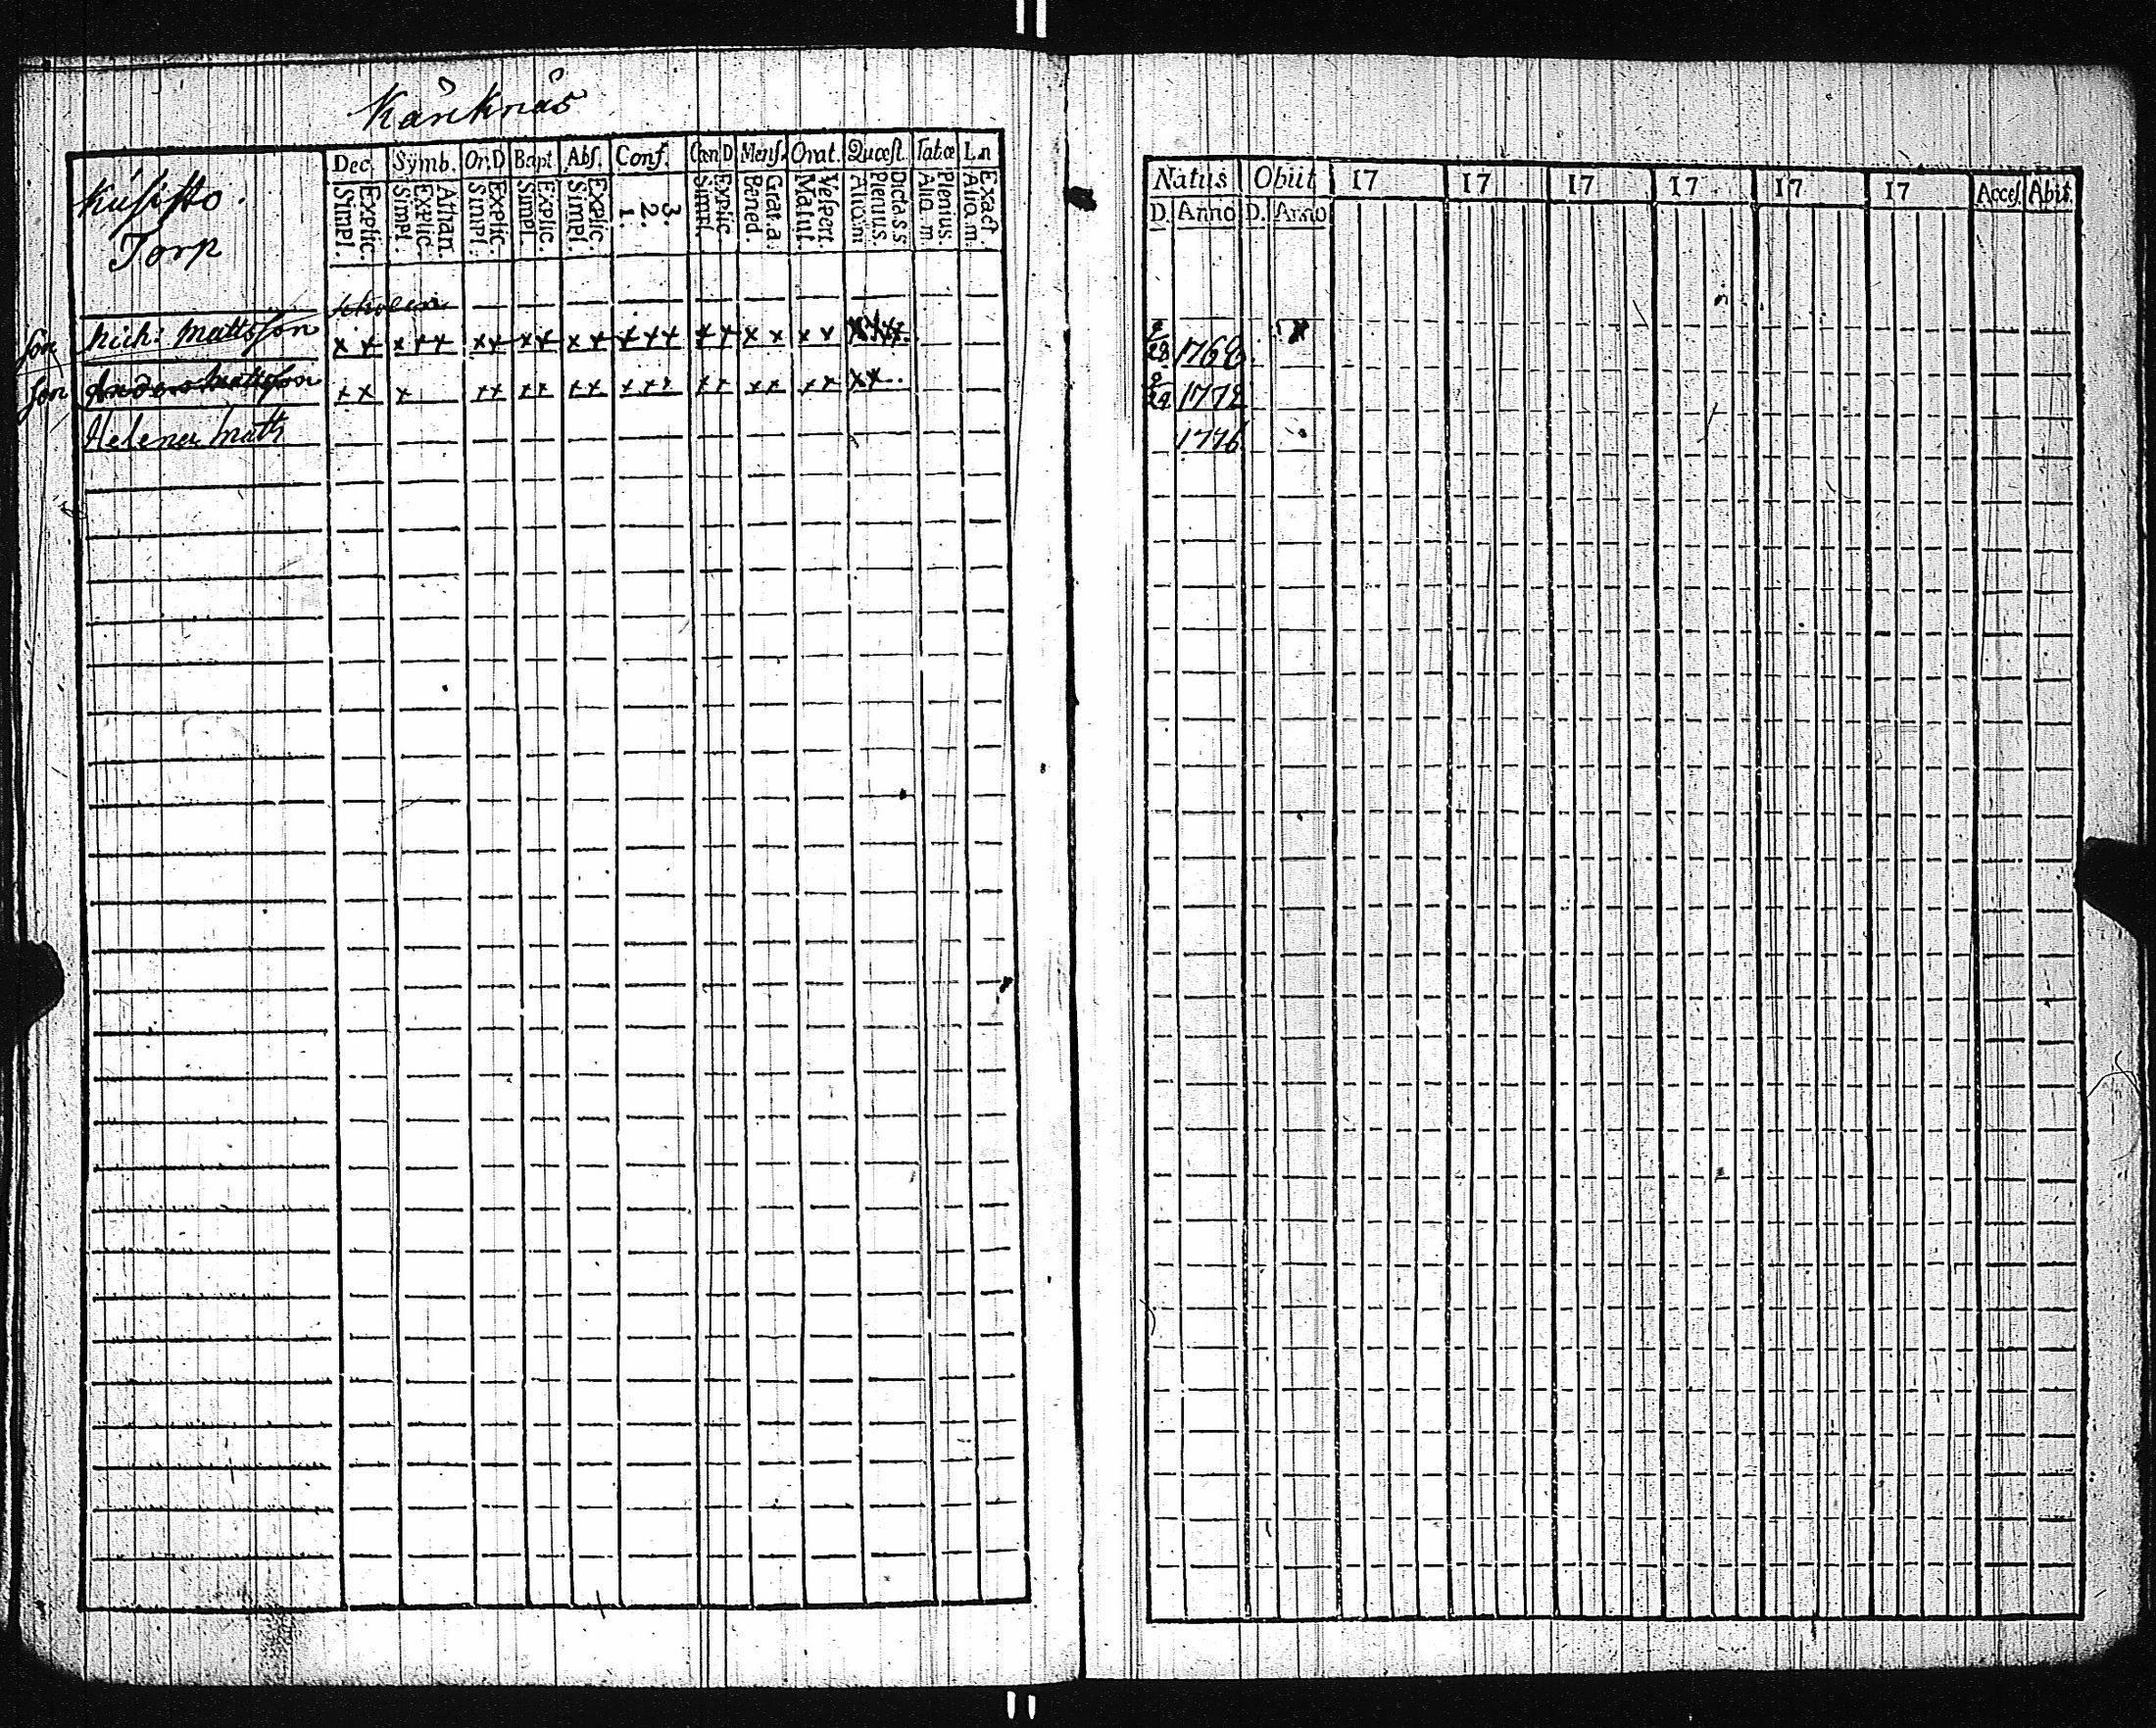 Kärknäs
Dec. Symb. Or.D Bapt. Abs. Conf. Cen D Mens. Orat. Quæst. Tabæ L.n
Simpl. Explic. Simpl. Explic. Athan. Simpl. Explic. Simpl. Explic. Simpl. Explic. 1. 2. 3. Simpl. Explic. Bened. Grat.a. Matut. Vespert. Aliq.m Plenius. Dicta.s.s. Aliq.m Plenius. Aliq.m Exact.
Kúsisto.
Torp
son Mich: Mattsson x x x x x x x x x x x x x x x x x x x x x
son Anders Mattsson x x x x x x x x x x x x x x x x x x x
Helena Matts
Natus Obiit 17 17 17 17 17 17 Acces. Abit.
D. Anno D. Anno
1768
1772
1776